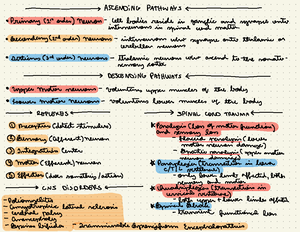 ASCENDING PATHWAYS
Primary (1st order) Neuron - Cell bodies reside in ganglia and synapse onto
interneurons in spinal cord matter
Secondary (2nd order) Neuron - interneuron who synapse onto thalamic or
cerebellar neurons
Tertiary (3rd order) Neuron - thalamic neurons who ascend to the somato-
sensory cortex
DESCENDING PATHWAYS
Upper Motor neurons - voluntary upper muscles of the body
Lower Motor neurons - voluntary lower muscles of the body
REFLEXES
① Reception (detect stimulus)
② Sensory (afferent) Neuron
③ Integration Center
④ Motor (efferent) Neuron
⑤ Effector (does something/action)
CNS DISORDERS
- Poliomyelitis
- Amyotrophic lateral sclerosis
- cerebral palsy
- Anencephaly
- Transmissible Spongiform Encephalopathies
SPINAL CORD TRAUMA
Paralysis (loss of motor function)
and sensory loss
Flaccid paralysis (lower motor
neuron damage)
Spastic paralysis (upper motor
neuron damage)
Paraplegia (transection in lower
- only lower limbs affected, both
Quadriplegia (transection in
- both upper & lower limbs affected
- transient functional loss